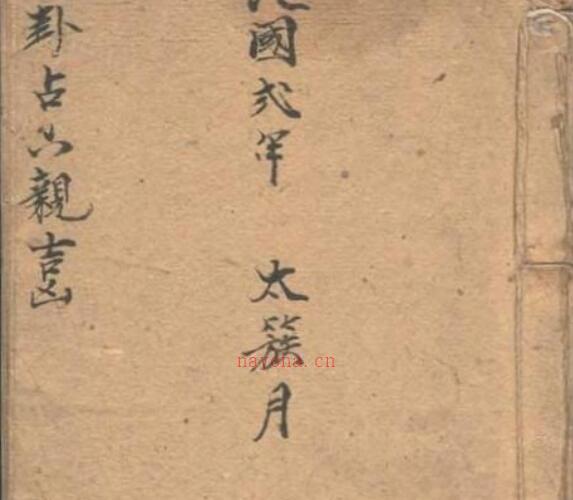 民國弍年 太簇月
卦占六親吉凶
nayona.cn